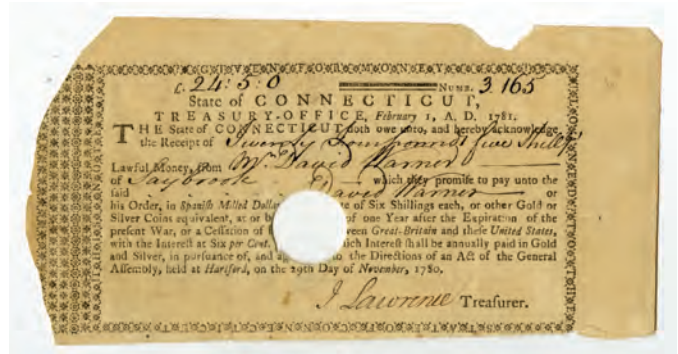 G·I·V·E·N·F·O·R·M·O·N·E·Y
£. 24:5:0 NUMB. 3165
State of CONNECTICUT,
TREASURY-OFFICE, February 1, A. D. 1781.
THE State of CONNECTICUT doth owe unto, and hereby acknowledge,
the Receipt of Twenty four pounds five Shills
Lawful Money, from Mr David Warner
of Saybrook which they promise to pay unto the
said David Warner or
his Order, in Spanish Milled of Six Shillings each, or other Gold or
Silver Coins equivalent, at or of one Year after the Expiration of the
present War, or a Cessation of Great-Britain and these United States,
with the Interest at Six per Cent. Interest shall be annually paid in Gold
and Silver, in pursuance of, and the Directions of an Act of the General
Assembly, held at Hartford, on the 29th Day of November, 1780.
J Lawrence Treasurer.